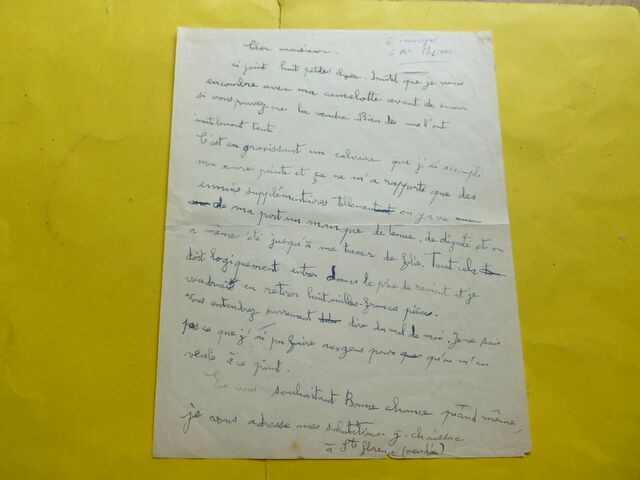 Cher monsieur.
à renvoyer
à Mr
ci joint huit petites choses. Inutil que je vous
encombre avec ma camelotte avant de savoir
si vous pouvez me la vendre. Bien des uns l'ont
inutilement tenté
C'est en gravissant un calvaire que j'ai accompli
mon œuvre peinte et ça ne m'a rapporté que des
ennuis supplémentaires tellement on y voit
de ma part un manque de tenue, de dignité et on
a même été jusqu'à me taxer de folie. Tout cela
doit logiquement entrer dans le prix de revient et je
voudrait en retirer huit milles francs pièces.
Vous entendrez surement dire du mal de moi. Je ne sais
pas ce que j'ai pu faire aux gens pour qu'on m'en
veule à ce point.
En vous souhaitant Bonne chance quand même,
je vous adresse mes salutations. g. chaissac
à Ste Florence (vendée)